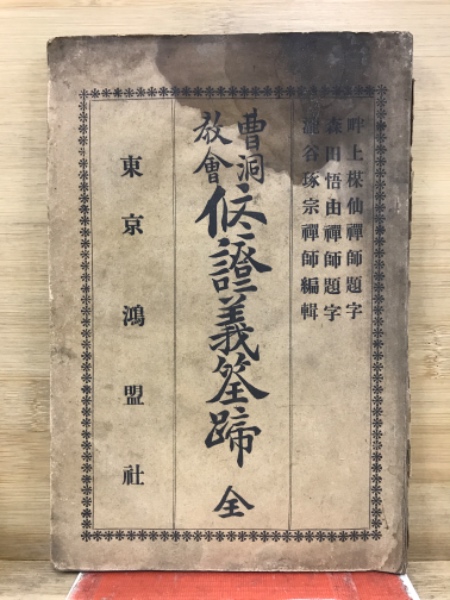 畔上楳仙禪師題字
森田悟由禪師題字
瀧谷琢宗禪師編輯
曹洞
敎會
修證義筌蹄 全
東京 鴻盟社